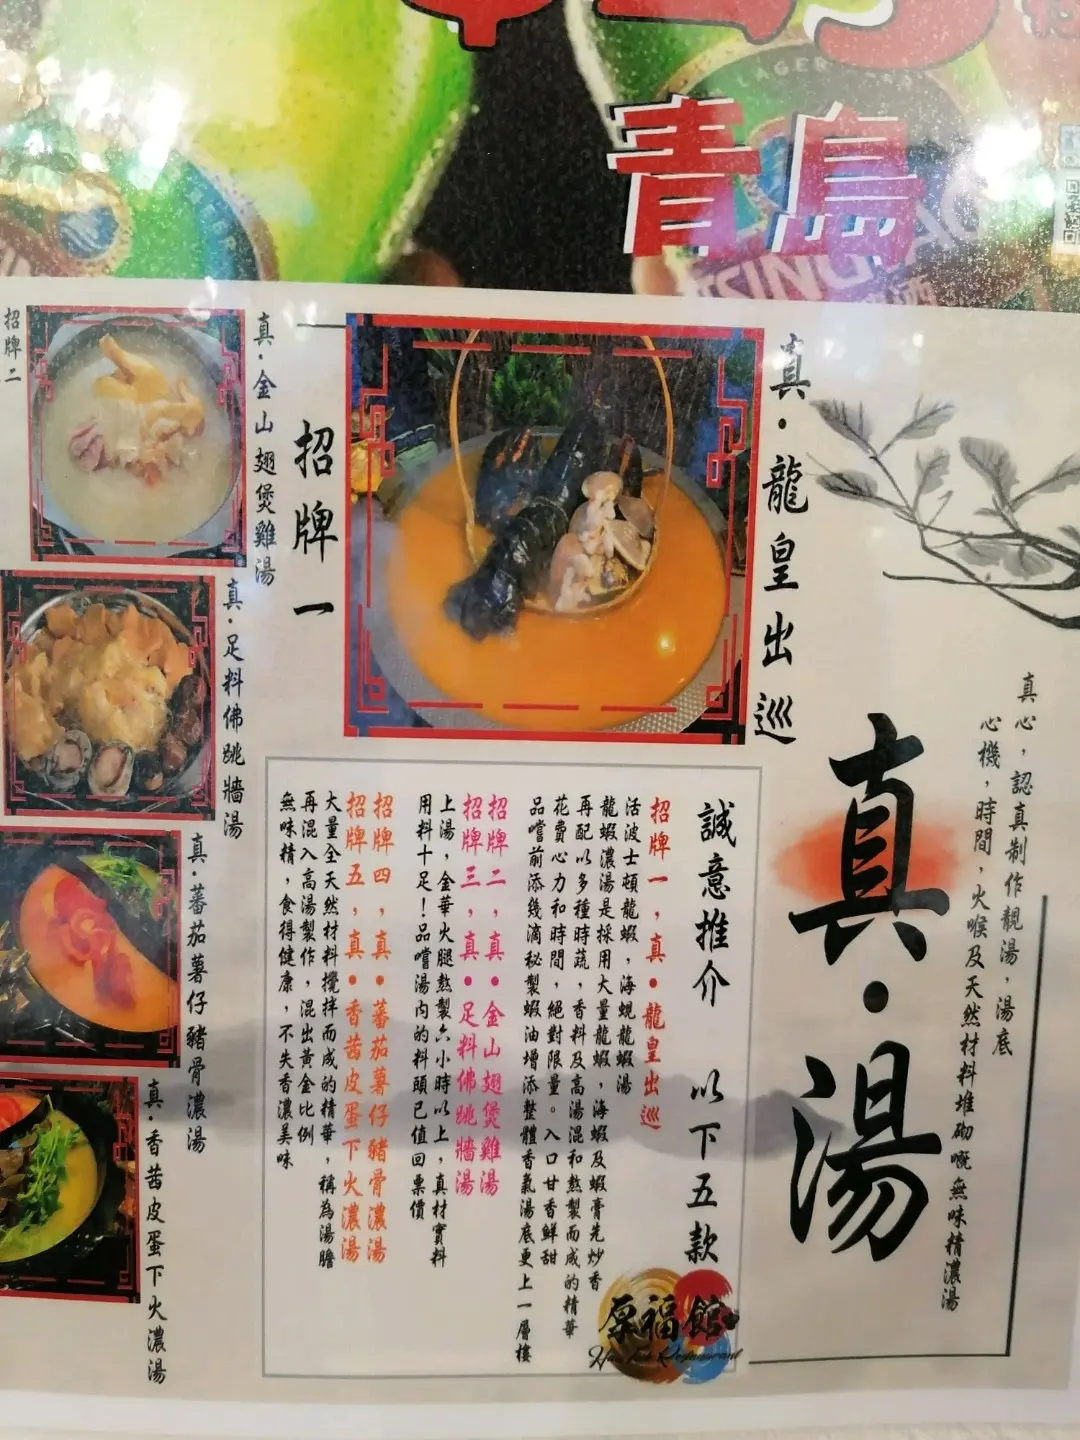 LAGER
青島
TSINGTAO
真心，認真制作靚湯，湯底
心機，時間，火喉及天然材料堆砌嘅無味精濃湯
真·湯
真·龍皇出巡
招牌一
真·金山翅煲雞湯
招牌二
真·足料佛跳牆湯
真·蕃茄薯仔豬骨濃湯
真·香茜皮蛋下火濃湯
誠意推介 以下五款
招牌一，真·龍皇出巡
活波士頓龍蝦，海蜆龍蝦湯
龍蝦濃湯是採用大量龍蝦，海蝦及蝦膏先炒香
再配以多種時蔬，香料及高湯混和熬製而成的精華
花費心力和時間，絕對限量。入口甘香鮮甜
品嘗前添幾滴秘製蝦油增添整體香氣湯底更上一層樓
招牌二，真·金山翅煲雞湯
招牌三，真·足料佛跳牆湯
上湯，金華火腿熬製六小時以上，真材實料
用料十足！品嘗湯內的料頭已值回票價
招牌四，真·蕃茄薯仔豬骨濃湯
招牌五，真·香茜皮蛋下火濃湯
大量全天然材料攪拌而成的精華，稱為湯膽
再混入高湯製作，混出黃金比例
無味精，食得健康，不失香濃美味
厚福館
Hau Fuk Restaurant